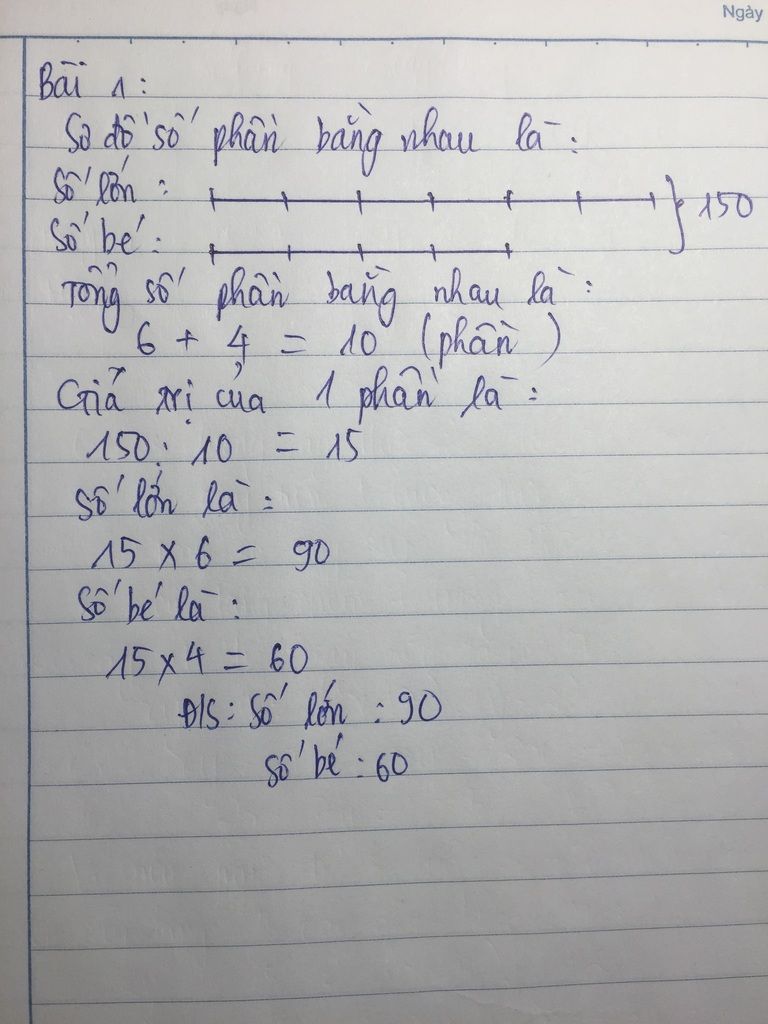 Ngày
Bài 1:
Sơ đồ số phần bằng nhau là:
Số lớn:
150
Số bé:
Tổng số phần bằng nhau là:
6 + 4 = 10 (phần)
Giá trị của 1 phần là:
150 : 10 = 15
Số lớn là:
15 x 6 = 90
Số bé là:
15 x 4 = 60
Đ/S: Số lớn: 90
Số bé: 60